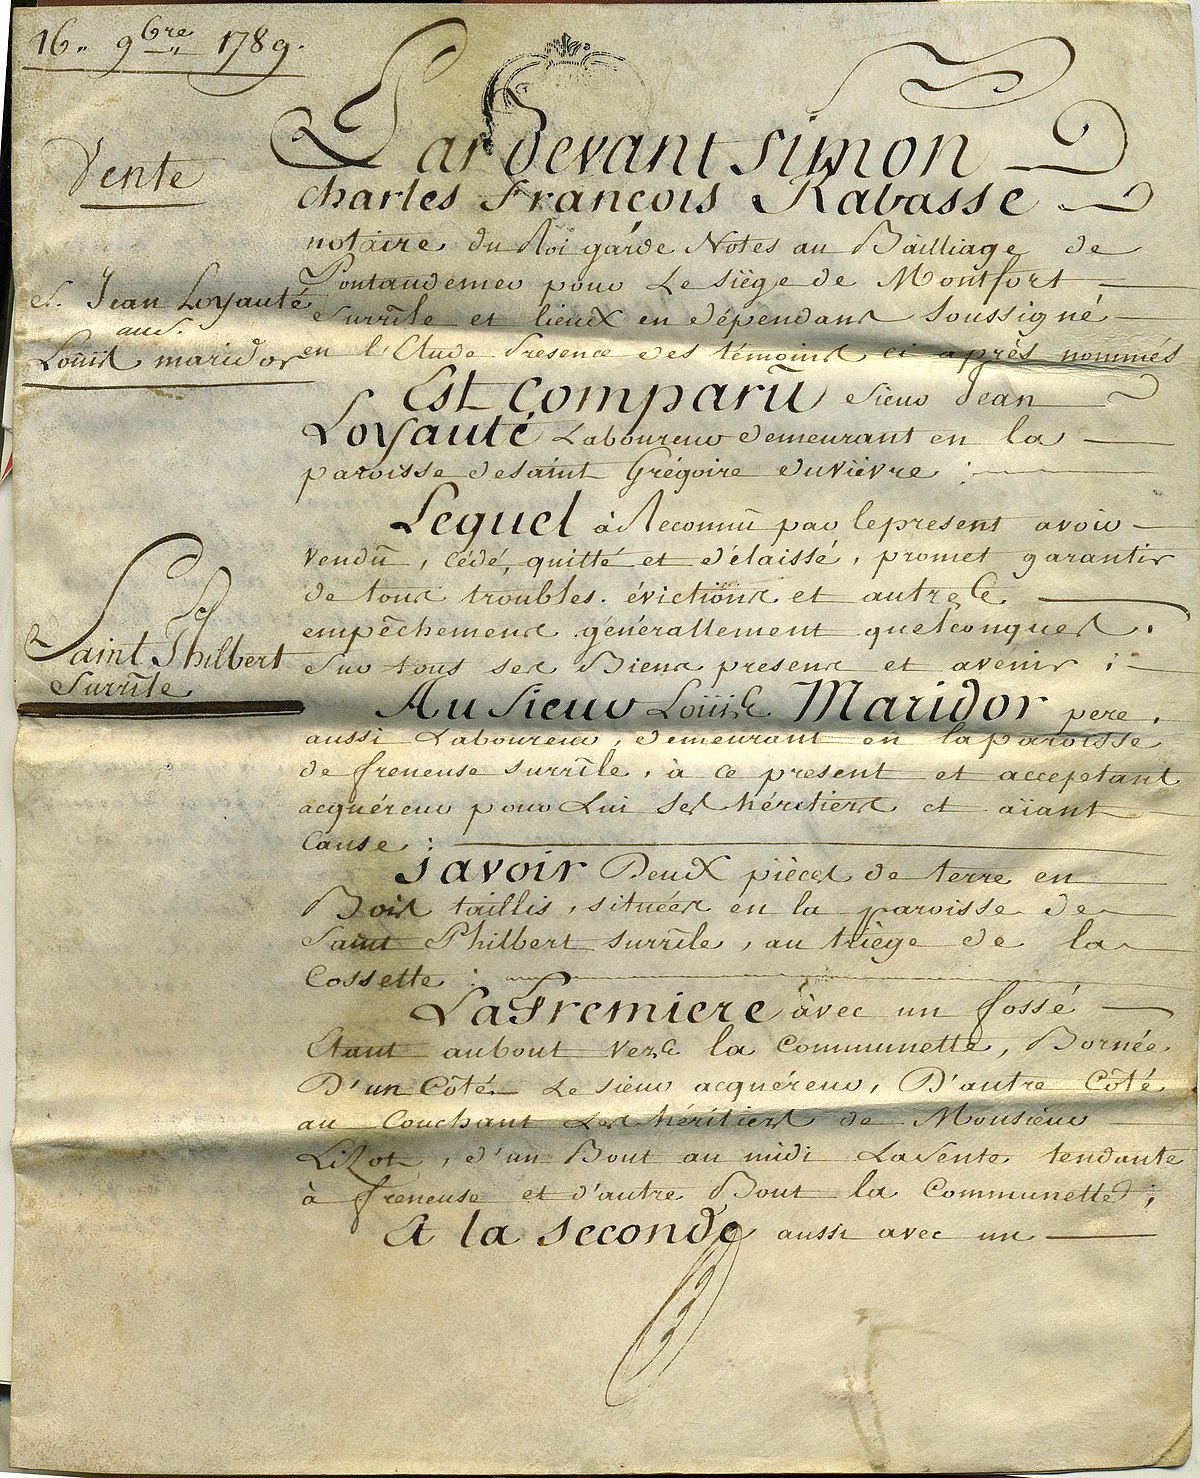 16. 9bre 1789.
Vente
Sr. Jean Loyauté
au Sr.
Louis maridor
Saint Philbert
Surrîle
Par devant Simon
charles François Rabasse
notaire du Roi garde Notes au Bailliage de
Pontaudemer pour Le siège de Montfort
Surrîle et lieux en dépendans Soussigné
en l'Etude Présence des témoins ci après nommés
Est comparû sieur Jean
Loyauté Laboureur demeurant en la
paroisse de saint Grégoire duviévre :
Lequel à Reconnû par leprésent avoir
vendû, cédé, quitté et délaissé, promet garantir
de tous troubles. évictions et autres
empêchemens généralement quelconques.
Sur tous ses Biens presens et avenir ;
Au Sieur Loüis Maridor pere,
aussi Laboureur, demeurant en laparoisse
de freneuse surrîle, à ce present et acceptant
acquéreur pour Lui ses héritiers et aïant
Cause :
Savoir Deux pièces de terre en
Bois taillis, situées en la paroisse de
Saint Philbert surrîle, au triège de la
Cossette :
La Premiere avec un fossé
Etant aubout vers la Communette, Bornée
D'un Côté Le sieur acquéreur, D'autre Côté
au Couchant Les héritiers de Monsieur
Lizot, d'un Bout au midi Lasente tendante
à freneuse et d'autre Bout la Communette ;
Et la seconde aussi avec un